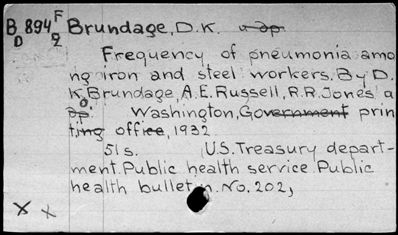 B 894 F Brundage, D.K. и др.
D 2
Frequency of pneumonia amo
ng iron and steel workers. By D.
K. Brundage, A.E. Russell, R.R. Jones a
др. Washington, Government prin
ting office, 1932
51 s. U.S. Treasury depart-
ment. Public health service. Public
health bulletin. No. 202,